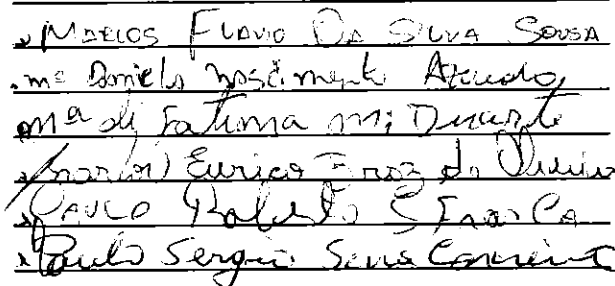 MARCOS FLAVIO DA SILVA SOUSA
Mª Daniela Nascimento Azevedo
Mª de Fatima M; Duarte
Eurico Froz de Oliveira
PAULO Roberto S FranCA
Paulo Sergio